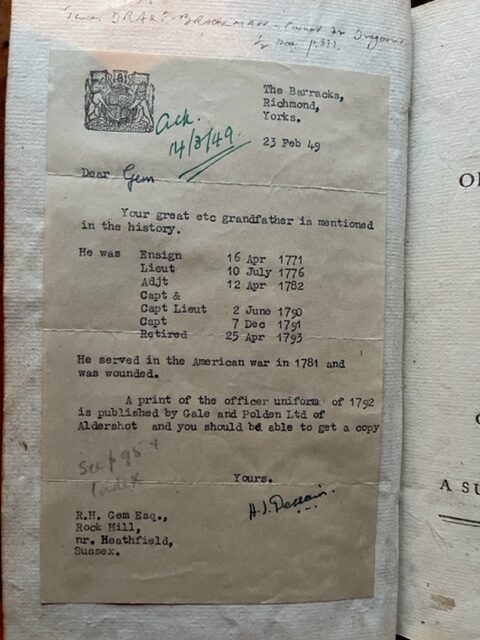 DRAKE-BROCKMAN - Cornet in Dragoons
½ pay p.
The Barracks,
Richmond,
Yorks.
Ack.
14/3/49.
23 Feb 49
Dear Gem
Your great etc grandfather is mentioned
in the history.
He was Ensign 16 Apr 1771
Lieut 10 July 1776
Adjt 12 Apr 1782
Capt &
Capt Lieut 2 June 1790
Capt 7 Dec 1791
Retired 25 Apr 1793
He served in the American war in 1781 and
was wounded.
A print of the officer uniform of 1792
is published by Gale and Polden Ltd of
Aldershot and you should be able to get a copy
See p 98 +
Index
Yours.
H.J.
R.H. Gem Esq.,
Rock Hill,
nr. Heathfield,
Sussex.
A SU